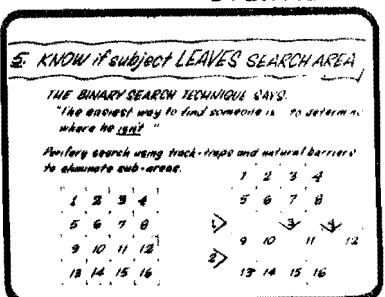 5. KNOW if subject LEAVES SEARCH AREA
THE BINARY SEARCH TECHNIQUE SAYS:
"The easiest way to find someone is to determine
where he isn't "
Perifery search using track-traps and natural barriers
to eliminate sub-areas.
1 2 3 4
5 6 7 8
9 10 11 12
13 14 15 16
1 2 3 4
5 6 7 8
1> 3 4
9 10 11 12
2>
13 14 15 16